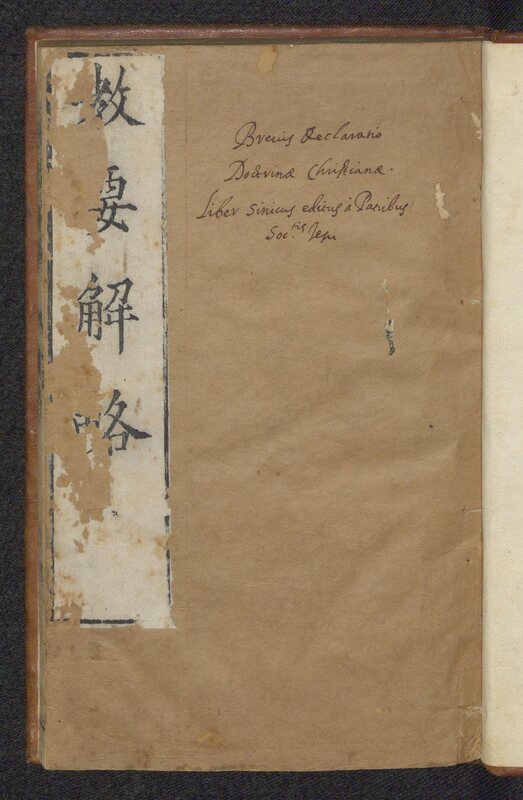 教要解略
Brevis declaratio
Doctrinæ Christianæ.
Liber Sinicus editus à Patribus
Soc.tis Jesu